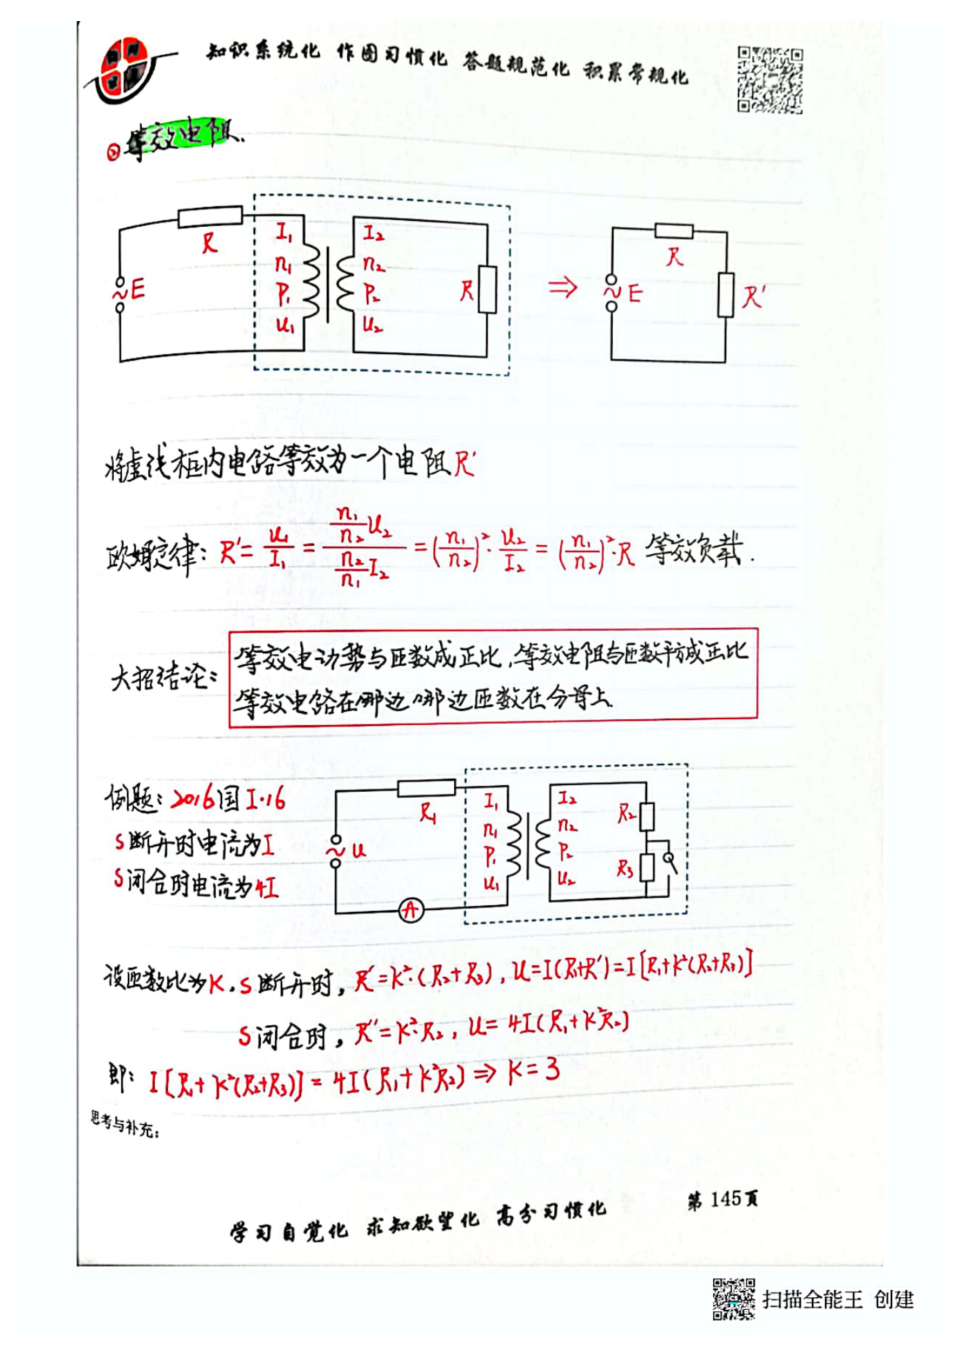 知识系统化 作图习惯化 答题规范化 积累常规化
② 等效电阻.
R
I₁
n₁
P₁
U₁
I₂
n₂
P₂
U₂
R
~E
⇒
R
~E
R'
将虚线框内电路等效为一个电阻R'
欧姆定律: R'=U₁/I₁=(n₁/n₂ U₂)/(n₂/n₁ I₂)=(n₁/n₂)²·U₂/I₂=(n₁/n₂)²·R 等效负载.
大招结论:
等效电动势与匝数成正比,等效电阻与匝数平方成正比
等效电路在哪边哪边匝数在分母上
例题: 2016国I·16
S断开时电流为I
S闭合时电流为4I
R₁
~U
A
I₁
n₁
P₁
U₁
I₂
n₂
P₂
U₂
R₂
R₃
设匝数比为K.S断开时, R'=K²·(R₂+R₃), U=I(R₁+R')=I[R₁+K²(R₂+R₃)]
S闭合时, R''=K²·R₂, U=4I(R₁+K²R₂)
即: I[R₁+K²(R₂+R₃)]=4I(R₁+K²R₂)⇒K=3
思考与补充:
第 145頁
学习自觉化 求知欲望化 高分习惯化
扫描全能王 创建